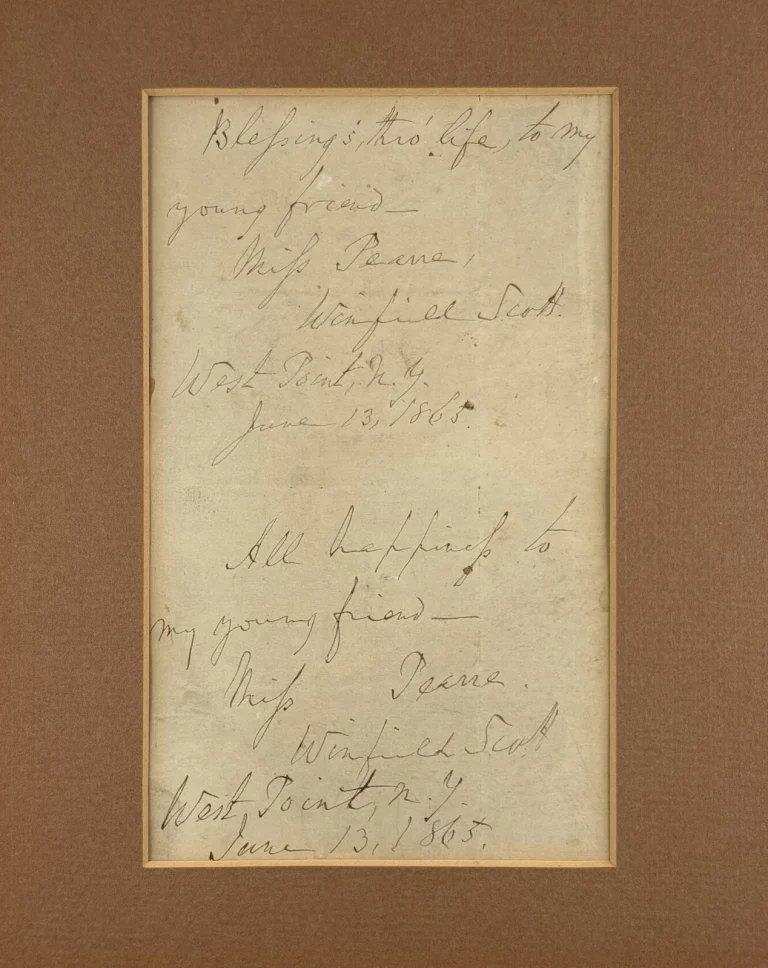 Blessings, thro' life, to my
young friend—
Miss Pearre,
Winfield Scott.
West Point, N.Y.
June 13, 1865.
All happiness to
my young friend—
Miss Pearre.
Winfield Scott
West Point, N.Y.
June 13, 1865.